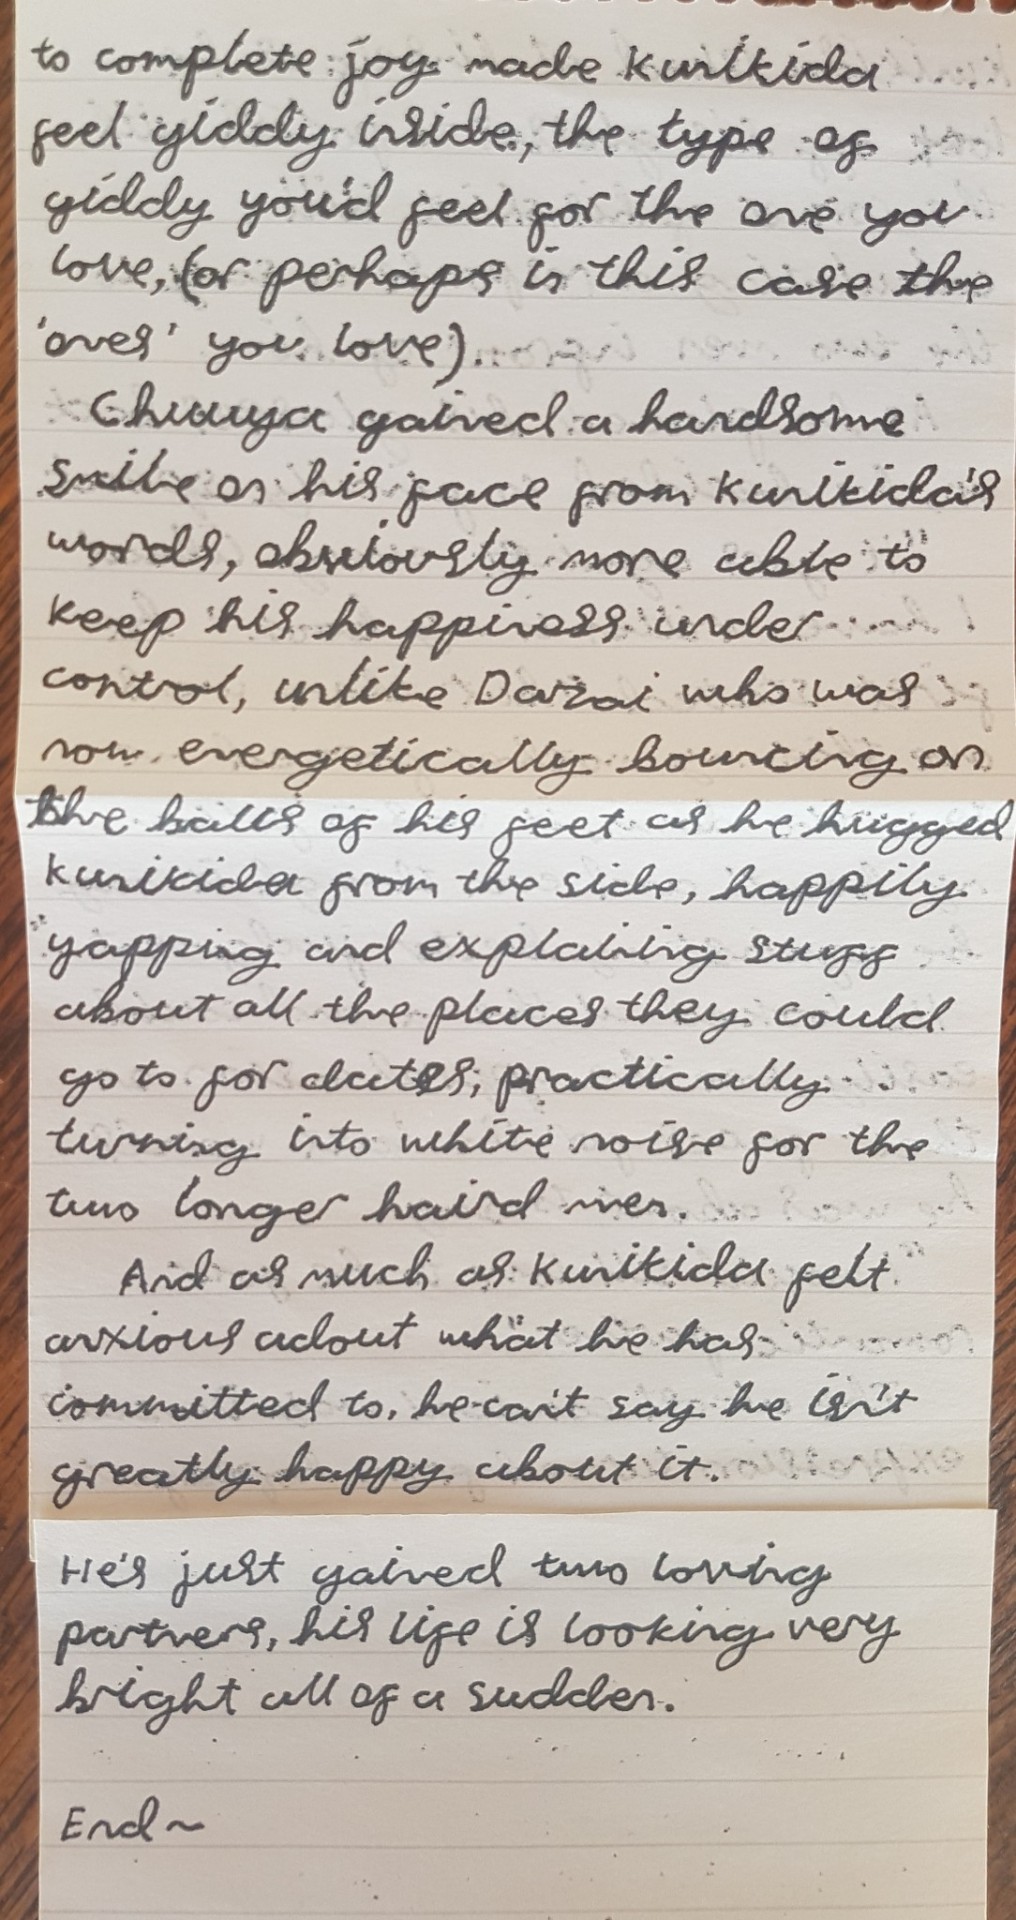 to complete joy made Kunikida
feel giddy inside, the type of
giddy you'd feel for the one you
love, (or perhaps in this case the
'ones' you love).
Chuuya gained a handsome
smile on his face from Kunikida's
words, obviously more able to
keep his happiness under
control, unlike Dazai who was
now energetically bouncing on
the balls of his feet as he hugged
Kunikida from the side, happily
yapping and explaining stuff
about all the places they could
go to for dates, practically
turning into white noise for the
two longer haird men.
And as much as Kunikida felt
anxious adout what he has
committed to, he can't say he isn't
greatly happy about it.
He's just gained two loving
partners, his life is looking very
bright all of a sudden.
End~